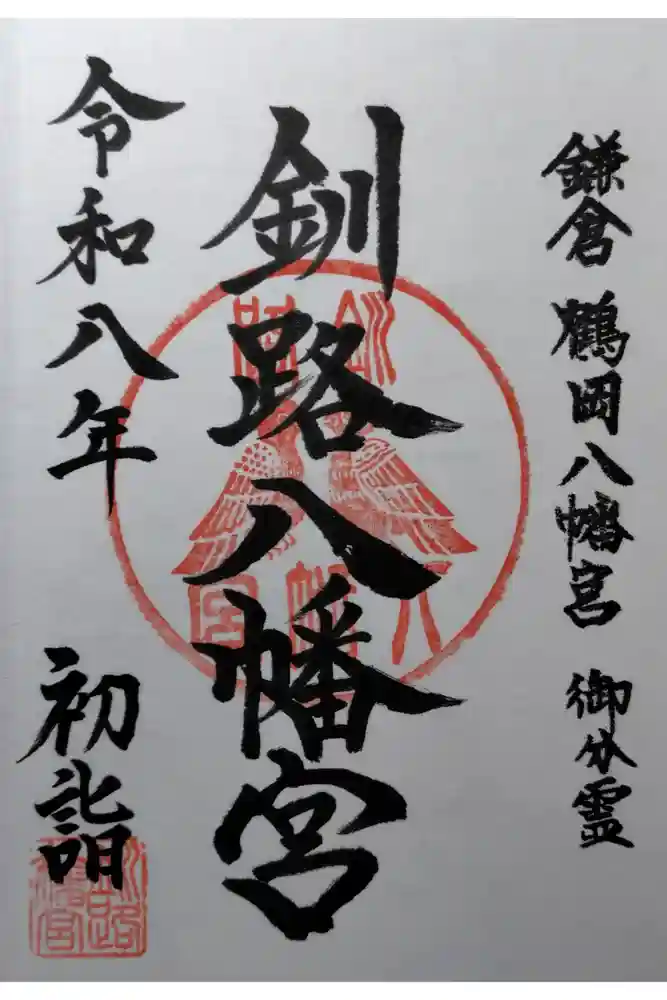 鎌倉 鶴岡八幡宮 御分霊
釧路八幡宮
令和八年 初詣
釧路
八幡
宮